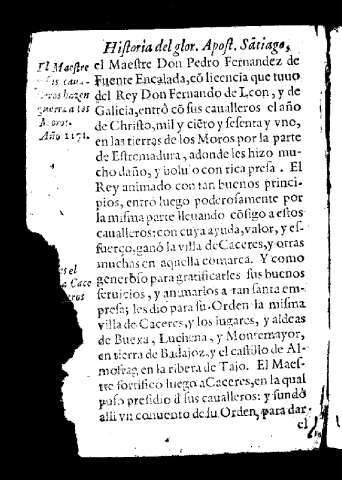 Historia del glor. Apost. Sãtiago,
El Maestre
sus caua-
hazen
guerra a los
Moros.
Año 1171.
el Maestre Don Pedro Fernandez de
Fuente Encalada, cõ licencia que tuuo
del Rey Don Fernando de Leon, y de
Galicia, entrò cõ sus caualleros el año
de Christo, mil y ciẽto y sesenta y vno,
en las tierras de los Moros por la parte
de Estremadura, adonde les hizo mu-
cho daño, y boluio con rica presa. El
Rey animado con tan buenos princi-
pios, entrò luego poderosamente por
la misma parte lleuando cõsigo a estos
caualleros: con cuya ayuda, valor, y es-
fuerço, ganó la villa de Caceres, y otras
muchas en aquella comarca. Y como
generoso para gratificarles sus buenos
seruicios, y animarlos a tan santa em-
presa; les dio para su Orden la misma
villa de Caceres, y los lugares, y aldeas
de Buexa, Luchena, y Montemayor,
en tierra de Badajoz, y el castillo de Al-
mofrag, en la ribera de Tajo. El Maes-
tre fortificò luego a Caceres, en la qual
puso presidio d sus caualleros: y fundò
alli vn conuento de su Orden, para dar
el
el
a Cace